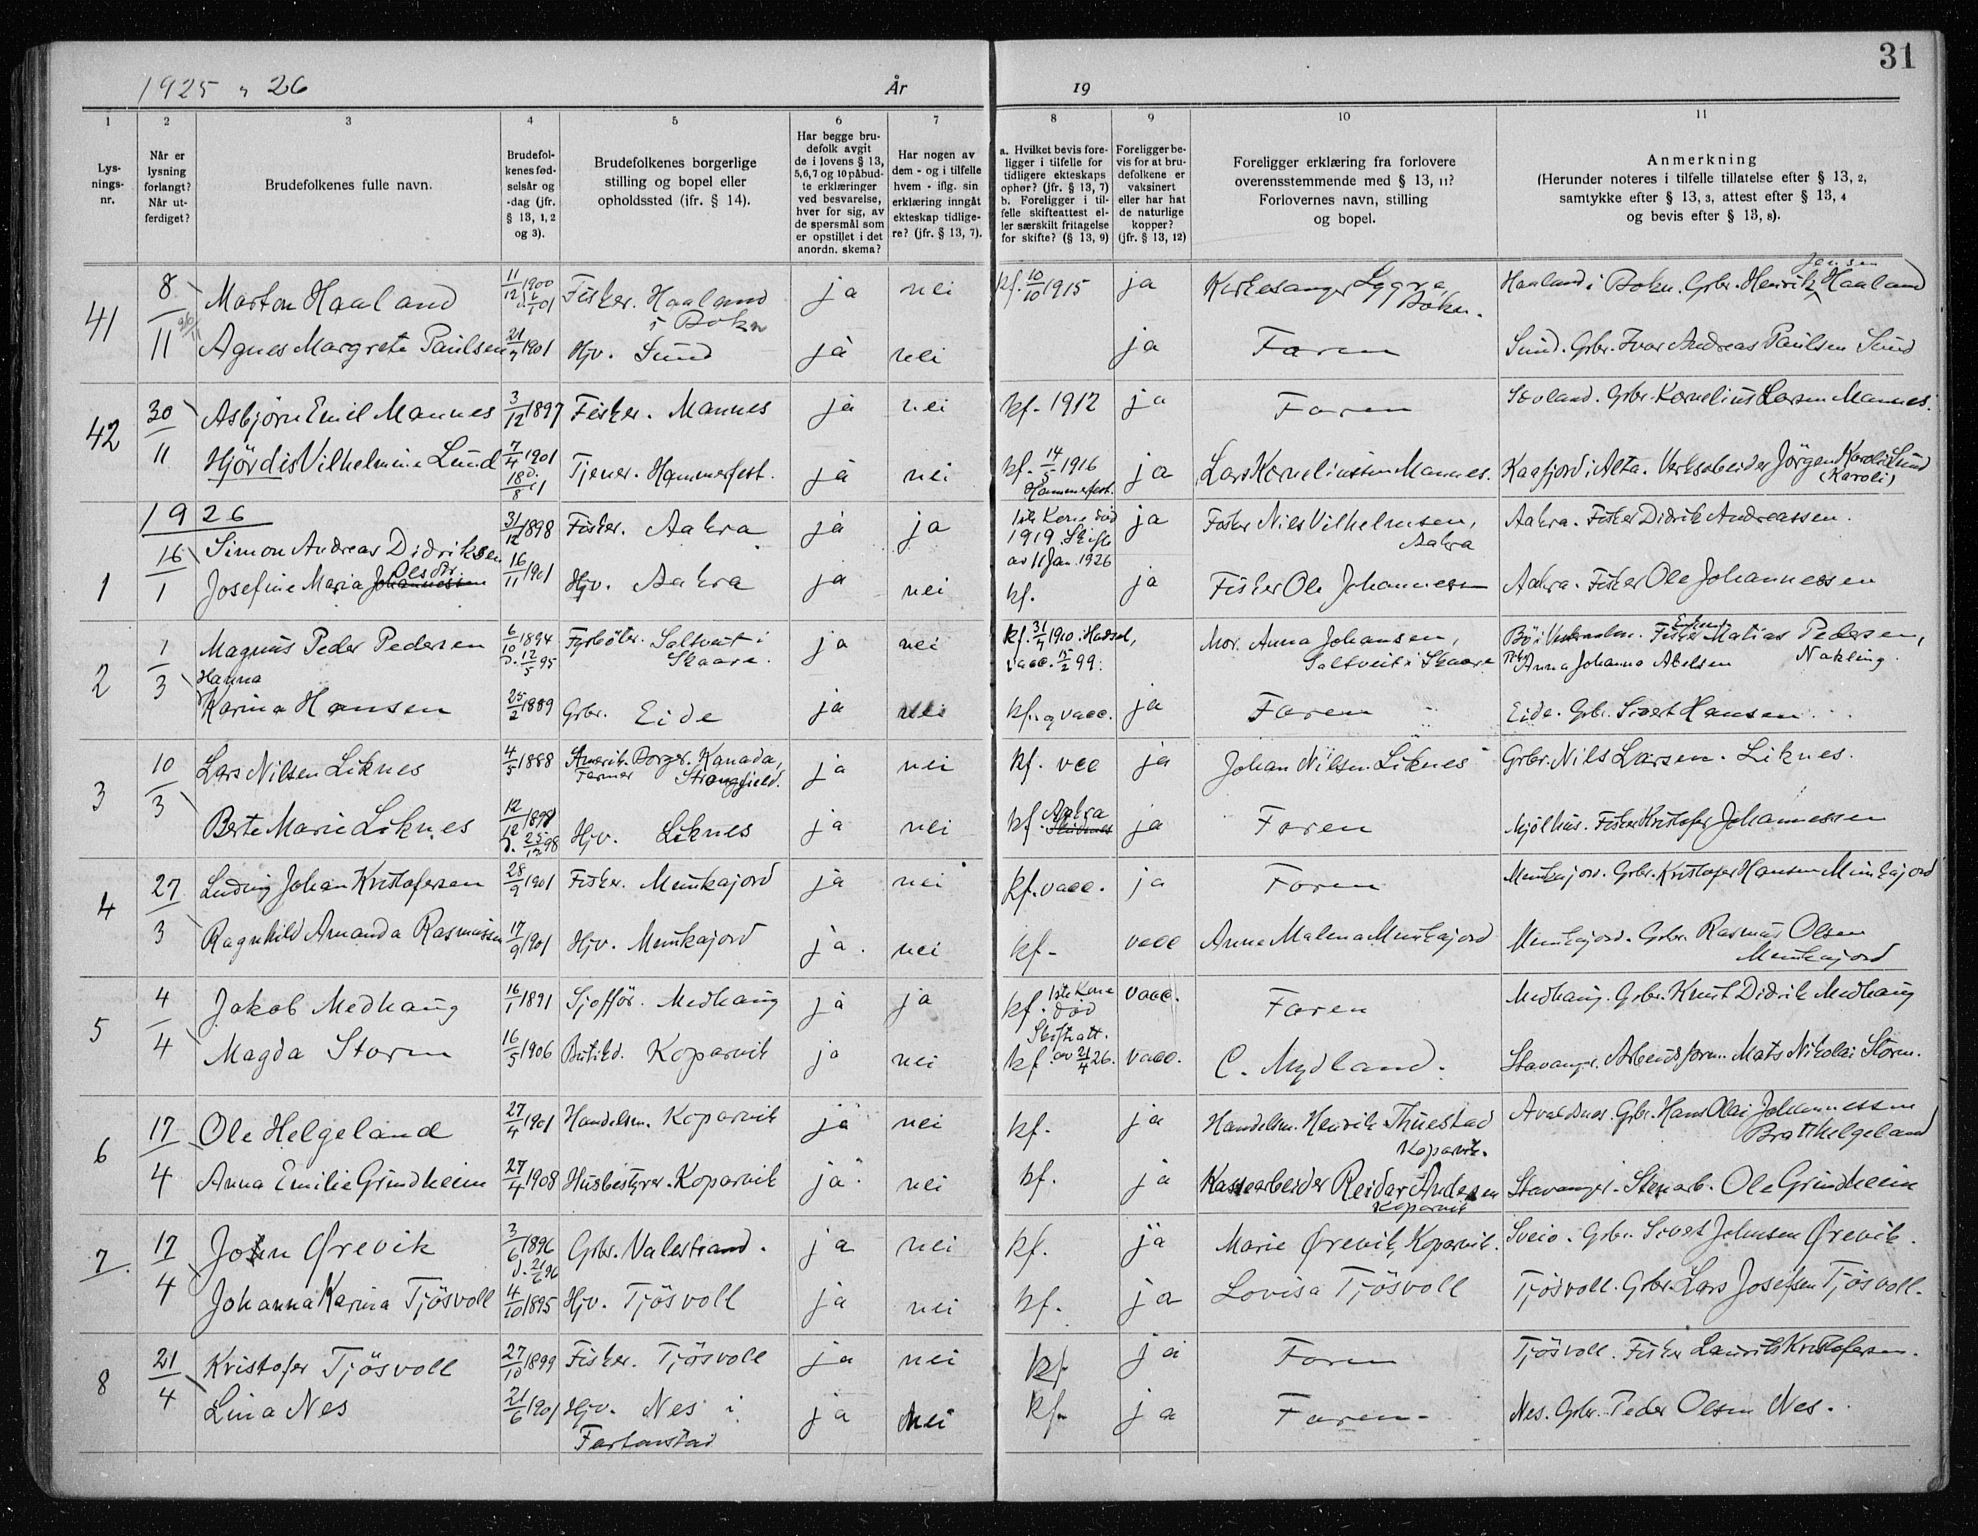 31
1925 & 26 År 19
1 2 3 4 5 6 7 8 9 10 11
Lys-
nings-
nr.
Når er
lysning
forlangt?
Når ut-
ferdiget?
Brudefolkenes fulle navn.
Brudefol-
kenes fød-
selsår og
-dag (jfr.
§ 13, 1, 2
og 3).
Brudefolkenes borgerlige
stilling og bopel eller
opholdssted (ifr. § 14).
Har begge bru-
defolk avgit
de i lovens § 13,
5,6,7 og 10 påbud-
te erklæringer
ved besvarelse,
hver for sig, av
de spørsmål som
er opstillet i det
anordn. skema?
Har nogen av
dem - og i tilfelle
hvem - iflg. sin
erklæring inngåt
ekteskap tidlige-
re? (jfr. § 13, 7).
a. Hvilket bevis fore-
ligger i tilfelle for
tidligere ekteskaps
ophør? (jfr. § 13, 7)
b. Foreligger i til-
felle skifteattest el-
ler særskilt fritagelse
for skifte? (§ 13, 9)
Foreligger be-
vis for at bru-
defolkene er
vaksinert
eller har hat
de naturlige
kopper?
(jfr. § 13, 12)
Foreligger erklæring fra forlovere
overensstemmende med § 13, 11?
Forlovernes navn, stilling
og bopel.
Anmerkning
(Herunder noteres i tilfelle tillatelse efter § 13, 2,
samtykke efter § 13, 3, attest efter § 13, 4
og bevis efter § 13, 8).
41 8/11 Marton Haaland 11/12 1900 Fisker. Haaland i Bokn ja nei kf. 10/10 1915 ja Kirkesanger Bokn. Haaland i Bokn. Grbr. Henrik Jensen Haaland
Agnes Margrete Paulsen 21/7 1901 Hjv. Sund ja nei ja Faren Sund. Grbr. Ivar Andreas Paulsen Sund
42 30/11 Asbjørn Emil Mannes 3/12 1897 Fisker. Mannes ja nei kf. 1912 ja Faren Grbr. Kornelius Larsen Mannes.
Hjördis Vilhelmine Lund 7/4 1901 d. 18/8 01 Tjener. Hammerfest. ja nei kf. 14/5 1916 Hammerfest. ja Lars Korneliussen Mannes. Kaafjord i Alta. Verksarbeider Jörgen Karoli Lund (Karoli)
1926
1 16/1 Simon Andreas Didriksen 31/12 1898 Fisker. Aakra ja ja 1ste Kone død 1919. Skifte av 11 Jan. 1926 ja Fisker Nils Vilhelmsen, Aakra Aakra. Fisker Didrik Andreassen.
Josefine Maria Johannessen Olsdtr. 16/11 1901 Hjv. Aakra ja nei kf. ja Fisker Ole Johannesen Aakra. Fisker Ole Johannessen
2 1/3 Magnus Peder Pedersen 6/10 1894 d. 12/5 95 Fyrbøter. Saltveit i Skaare. ja nei kf. 31/7 1910 i Hadsel, vacc. 15/2 99. Mor. Anna Johansen, Saltveit i Skaare Fisker Matias Pedersen, Anna Johanna Abelsen
Hanna Karina Hansen 25/2 1889 Grbr. Eide ja nei kf. og vacc. ja Faren Eide. Grbr. Sivert Hansen.
3 10/3 Lars Nilsen Liknes 4/5 1888 Amerik. Borger. Kanada, Farmer Strongfield. ja nei kf. vcc ja Johan Nilsen Liknes Grbr. Nils Larsen. Liknes.
Berte Marie Liknes 12/12 1898 d. 25/12 98 Hjv. Liknes ja nei kf. Aakra ja Faren Mjølhus. Fisker Kristofer Johannessen
4 27/3 Ludvig Johan Kristofersen 28/9 1901 Fisker. Munkajord ja nei kf. vacc. ja Faren Munkajord. Grbr. Kristofer Hansen Munkajord
Ragnhild Amanda Rasmussen 17/9 1901 Hjv. Munkajord ja. nei kf. vacc Anne Malena Munkajord Munkajord. Grbr. Rasmus Olsen Munkajord
5 4/4 Jakob Medhaug 16/1 1891 Sjofför. Medhaug ja ja kf. 1ste Kone død vacc. Faren Medhaug. Grbr. Knut Didrik Medhaug
Magda Storm 16/5 1906 Butikd. Koparvik ja nei Skifteatt. kf. av 21/4 26. vacc. C. Mydland. Stavanger. Arbeidsform. Mats Nikolai Storm.
6 17/4 Ole Helgeland 27/4 1901 Handelsm. Koparvik ja nei kf. ja Handelsm. Henrik Thuestad Koparvik. Avaldsnes. Grbr. Hans Olai Johannessen Bratthelgeland
Anna Emilie Grindheim 27/4 1908 Husbestyrer. Koparvik ja nei kf. ja Kassearbeider Reidar Andersen Koparvik Stavanger. Stenarb. Ole Grindheim
7. 17/4 John Ørevik 3/6 1896 d. 21/6 96 Grbr. Valestrand. ja nei kf. ja Marie Ørevik, Koparvik. Sveio. Grbr. Sivert Johnsen Ørevik.
Johanna Karina Tjösvoll 4/10 1895 Hjv. Tjösvoll ja nei kf. ja Lovisa Tjösvoll Tjösvoll. Grbr. Lars Josefsen Tjösvoll.
8 21/4 Kristofer Tjösvoll 27/10 1899 Fisker. Tjösvoll ja nei kf. ja Faren Tjösvoll. Fisker Laurits Kristofersen.
Lina Nes 21/6 1901 Hjv. Nes i ja nei kf. ja Faren. Nes. Grbr. Peder Olsen Nes.